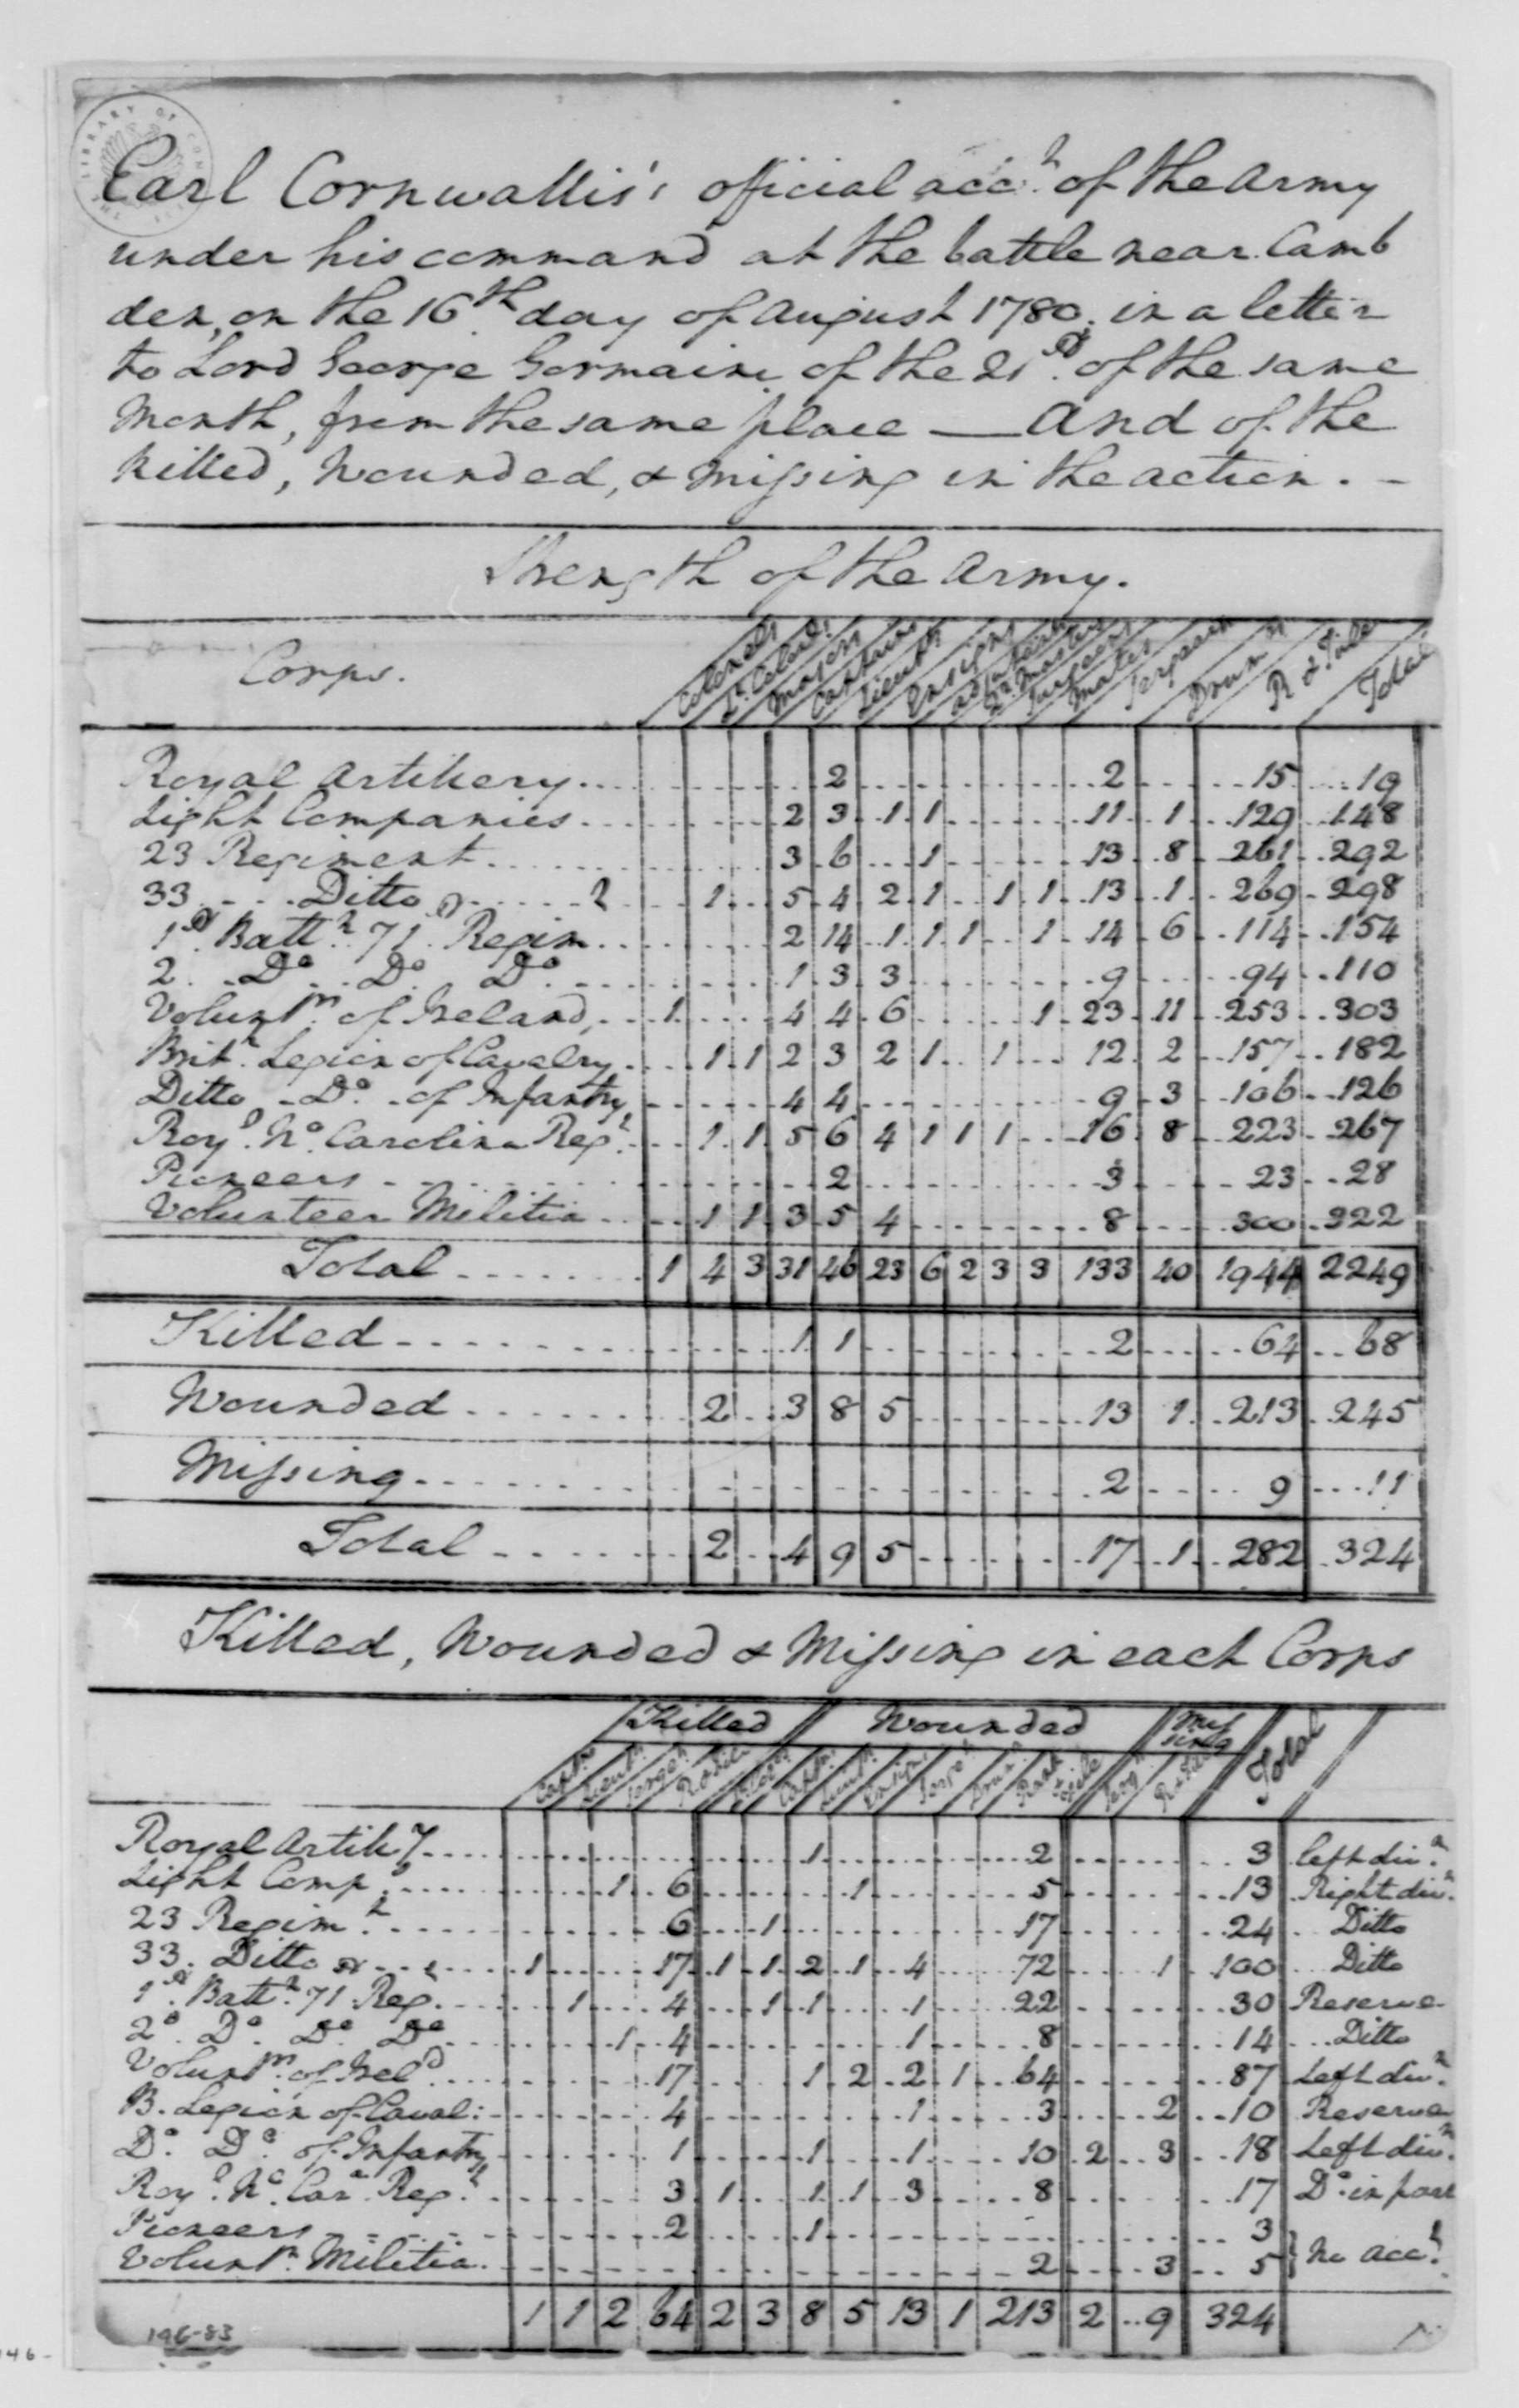 Earl Cornwallis's official acct. of the Army
under his command at the battle near Camb
den, on the 16th day of August 1780. in a letter
to Lord George Germaine of the 21st. of the same
Month, from the same place — and of the
killed, wounded, & missing in the action. -
Strength of the Army.
Corps. Colonels Lt. Colonls. Majors Captains Lieuts Ensigns Adjutants Qr. Masters Surgeons Mates Sergeants Drumrs R & File Total
Royal Artillery 2 2 15 19
Light Companies 2 3 1 1 11 1 129 148
23 Regiment 3 6 1 13 8 261 292
33 Ditto 1 5 4 2 1 1 1 13 1 269 298
1st. Battn. 71 Regimt. 2 14 1 1 1 1 14 6 114 154
2. Do. Do. Do. 1 3 3 9 94 110
Voluntrs. of Ireland, 1 4 4 6 1 23 11 253 303
Brith. Legion of Cavalry 1 1 2 3 2 1 1 12 2 157 182
Ditto - Do. - of Infantry 4 4 9 3 106 126
Royl. No. Carolina Regt. 1 1 5 6 4 1 1 1 16 8 223 267
Pioneers 2 3 23 28
Volunteer Militia 1 1 3 5 4 8 300 322
Total 1 4 3 31 46 23 6 2 3 3 133 40 1944 2249
Killed 1 1 2 64 68
Wounded 2 3 8 5 13 1 213 245
Missing 2 9 11
Total 2 4 9 5 17 1 282 324
Killed, Wounded & Missing in each Corps
Killed Wounded Mis
sing Total
Capts. Lieuts. Serges. R & File Captn. Lieuts. Ensigs. Serges. Drums. Rank & File Serg. R & File
Royal Artily 1 2 3 left divn.
Light Comps. 1 6 1 5 13 Right divn.
23 Regimt. 6 1 17 24 Ditto
33. Ditto 1 17 1 1 2 1 4 72 1 100 Ditto
1st. Battn. 71 Reg. 1 4 1 1 1 22 30 Reserve
2d. Do. Do. Do. 1 4 1 8 14 Ditto
Voluntrs. of Ireld. 17 1 2 2 1 64 87 Left divn.
B. Legion of Caval: 4 1 3 2 10 Reserve
Do. Do. of Infantry 1 1 1 10 2 3 18 Left divn.
Royl. No. Cara. Regt. 3 1 1 1 3 8 17 Do. in part
Pioneers 2 1 3
Voluntr. Militia 2 3 5 } No acct.
1 1 2 64 2 3 8 5 13 1 213 2 9 324
196-83